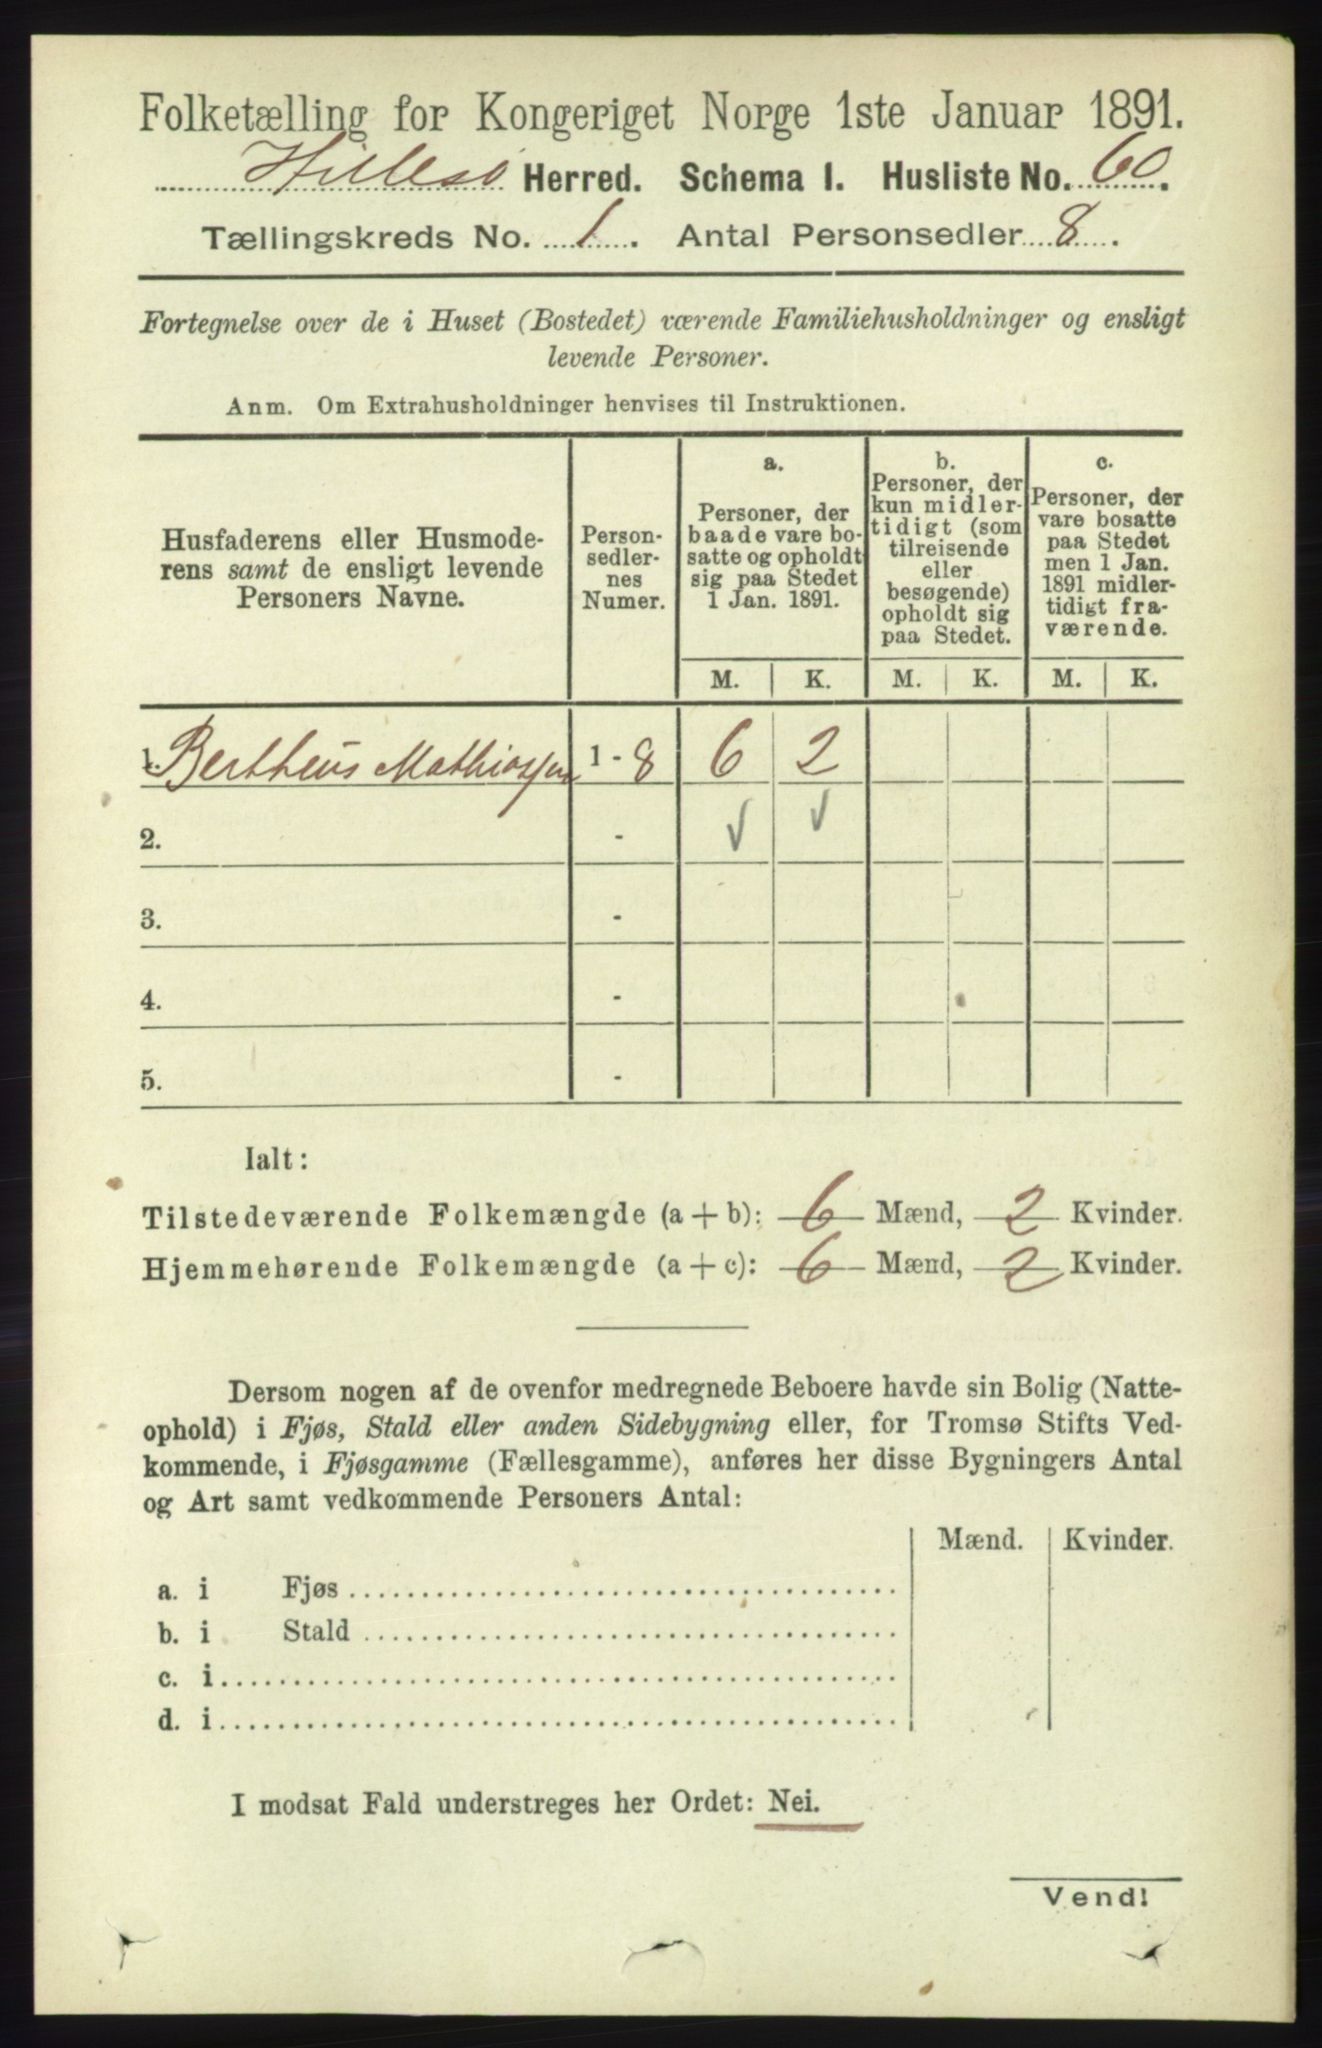 Folketælling for Kongeriget Norge 1ste Januar 1891.
Hillesø Herred. Schema I. Husliste No. 60.
Tællingskreds No. 1. Antal Personsedler 8.
Fortegnelse over de i Huset (Bostedet) værende Familiehusholdninger og ensligt
levende Personer.
Anm. Om Extrahusholdninger henvises til Instruktionen.
Husfaderens eller Husmode-
rens samt de ensligt levende
Personers Navne.
Person-
sedler-
nes
Numer.
a.
Personer, der
baade vare bo-
satte og opholdt
sig paa Stedet
1 Jan. 1891.
b.
Personer, der
kun midler-
tidigt (som
tilreisende
eller
besøgende)
opholdt sig
paa Stedet.
c.
Personer, der
vare bosatte
paa Stedet
men 1 Jan.
1891 midler-
tidigt fra-
værende.
M. K. M. K. M. K.
1. Bertheus Mathiassen 1 - 8 6 2
2. - √ √
3. -
4. -
5. -
Ialt:
Tilstedeværende Folkemængde (a + b): 6 Mænd, 2 Kvinder.
Hjemmehørende Folkemængde (a + c): 6 Mænd, 2 Kvinder.
Dersom nogen af de ovenfor medregnede Beboere havde sin Bolig (Natte-
ophold) i Fjøs, Stald eller anden Sidebygning eller, for Tromsø Stifts Ved-
kommende, i Fjøsgamme (Fællesgamme), anføres her disse Bygningers Antal
og Art samt vedkommende Personers Antal:
Mænd. Kvinder.
a. i Fjøs
b. i Stald
c. i
d. i
I modsat Fald understreges her Ordet: Nei.
Vend!